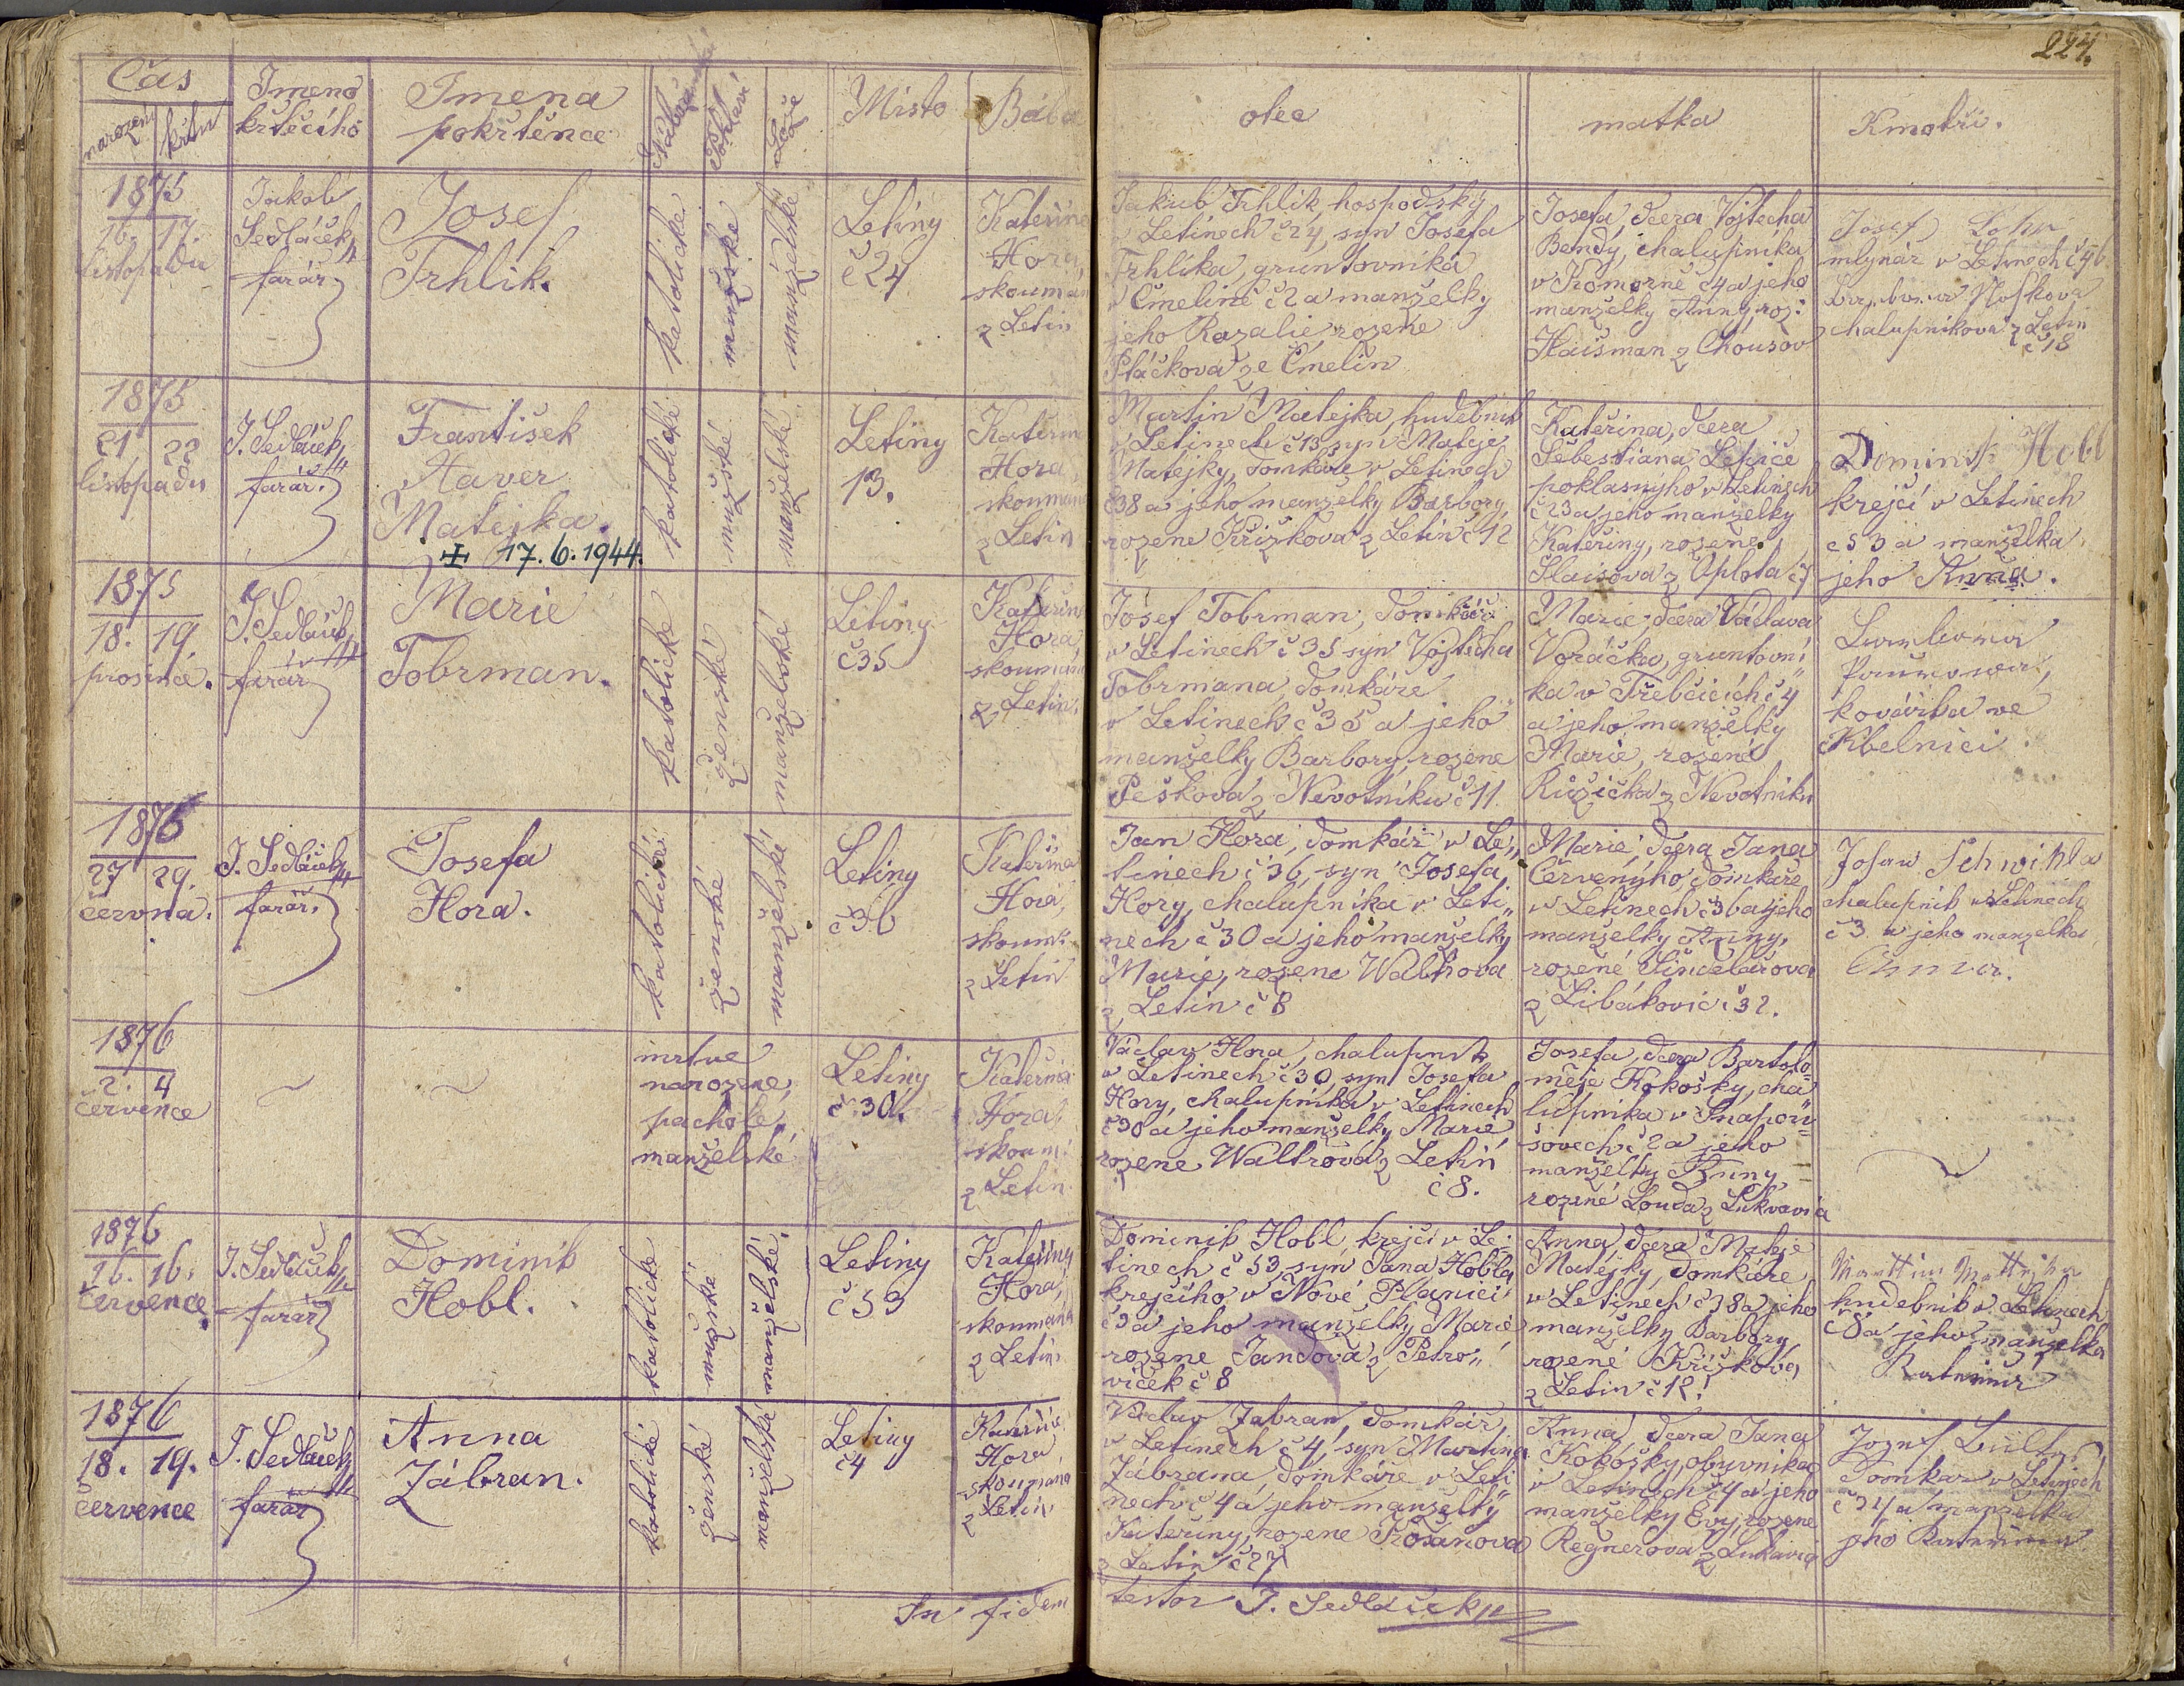 224.
Čas
narození
křtu
Jmeno
křtěcího
Jmena
pokřtěnce
Pohlaví
Lože
Místo
Bába
otec
matka
Kmotři.
1875
16. 17.
listopadu
Jakob
Sedláček,
farář
Josef
Trhlik.
katolické
mužské
manželské
Letiny
č 24
Kateřina
Hora,
skoumaná
z Letin
Jakub Trhlik, hospodský
v Letinech č 24, syn Josefa
Trhlíka, gruntovníka
v Čmelíně č 2 a manželky
jeho Rozalie, rozené
Ptáčkova ze Čmelin
Josefa, dcera Vojtecha
Bendy, chalupníka
v Komorně č 4 a jeho
manželky Anny, roz:
Haisman z Chousov
Josef
mlynář v Letinech č 56
chalupníkova z Letin
č 18
1875
21 22
listopadu
J. Sedláček,
farář.
František
Xaver
Matejka.
+ 17.6.1944.
katolické
mužské
manželské
Letiny
13.
Kateřina
Hora,
skoumaná
z Letin
Martin Matejka, hudebník
v Letinech č 13, syn Mateje
Matejky, domkáře v Letinech
č 38 a jeho manželky Barbory,
rozene Křížkova z Letin č 12
Kateřina, dcera
Šebestiana Lepiče
poklasnyho v Letinech
č 23 a jeho manželky
Kateřiny, rozene
z Oplota č 7
Dominik Hobl
krejčí v Letinech
č 53 a manželka
jeho Anna.
1875
18. 19.
prosince.
J. Sedláček,
farář
Marie
Tobrman.
katolické
ženské
manželské
Letiny
č 35
Kateřina
Hora,
skoumaná
z Letin.
Josef Tobrman, domkář
v Letinech č 35 syn Vojtěcha
Tobrmana, domkáře
v Letinech č 35 a jeho
manželky Barbory, rozene
Peškova z Nevotníku č 11.
Marie, dcera Václava
Voráčka, gruntovní
ka v Třebčicích č 4
a jeho manželky
Marie, rozené
Růžička z Nevotníku
Barbora
kovářka ve
Kbelnici.
1876
27 29.
června.
J. Sedláček,
farář.
Josefa
Hora.
katolické
ženské
manželské
Letiny
č 36
Kateřina
Hora,
skoum:
z Letin
Jan Hora, domkář v Le„
tinech č 36, syn Josefa
Hory, chalupníka v Leti„
nech č 30 a jeho manželky
Marie, rozene Waltrova
z Letin č 8
Marie, dcera Jana
Červenýho domkáře
v Letinech č 36 a jeho
manželky Anny,
rozené Šindelářova
z Libákovic č 32.
Josef Schwihla
chalupník v Letinech
č 3 a jeho manzelka
Anna.
1876
2. 4
července
~
~
mrtve
narozene,
pachole
manželské
Letiny
č 30.
Kateřina
Hora,
skoum:
z Letin
Václav Hora, chalupník
v Letinech č 30, syn Josefa
Hory, chalupníka v Letinech
č 30 a jeho manželky Marie
rozene Waltrova z Letin
č 8.
Josefa, dcera Bartolo
měje Kokošky, cha
lupníka v Snapou
šovech č 2 a jeho
manželky Anny,
rozené Louda z Lukavia
~
1876
16. 16.
července.
J. Sedláček,
farář
Dominik
Hobl.
katolické
mužské
manželské.
Letiny
č 53
Kateřiny
Hora,
skoumaná
z Letin.
Dominik Hobl, krejčí v Le„
tinech č 53, syn Jana Hobla
krejčího v Nové Planici
č 9 a jeho manželky Marie
rozene Jandova z Petro„
viček č 8
Anna, dcera Mateje
Matejky, domkáře
v Letinech č 38 a jeho
manželky Barbory,
rozené Křížkova,
z Letin č 12.
Marttin Mattejka
hudebník v Letinech
č 8 a jeho manzelka
Kateřina
1876
18. 19.
července
J. Sedláček,
farář
Anna
Zábran.
katolické
ženské
manželské
Letiny
č 4
Kateřina
Hora
skoumaná
z Letin.
Václav Zabran, domkář,
v Letinech č 4, syn Martina
Zábrana, domkáře v Leti„
nech č 4 a jeho manželky
Kateřiny, rozene
z Letin č 27
Anna dcera Jana
Kokošky, obuvníka
v Letinech č 4 a jeho
manželky Evy, rozene
Regnerova z Lukavia
Josef
Domkář v Letinech
č 24 a manželka
jeho Kateřina
In fidem
testor J. Sedláček